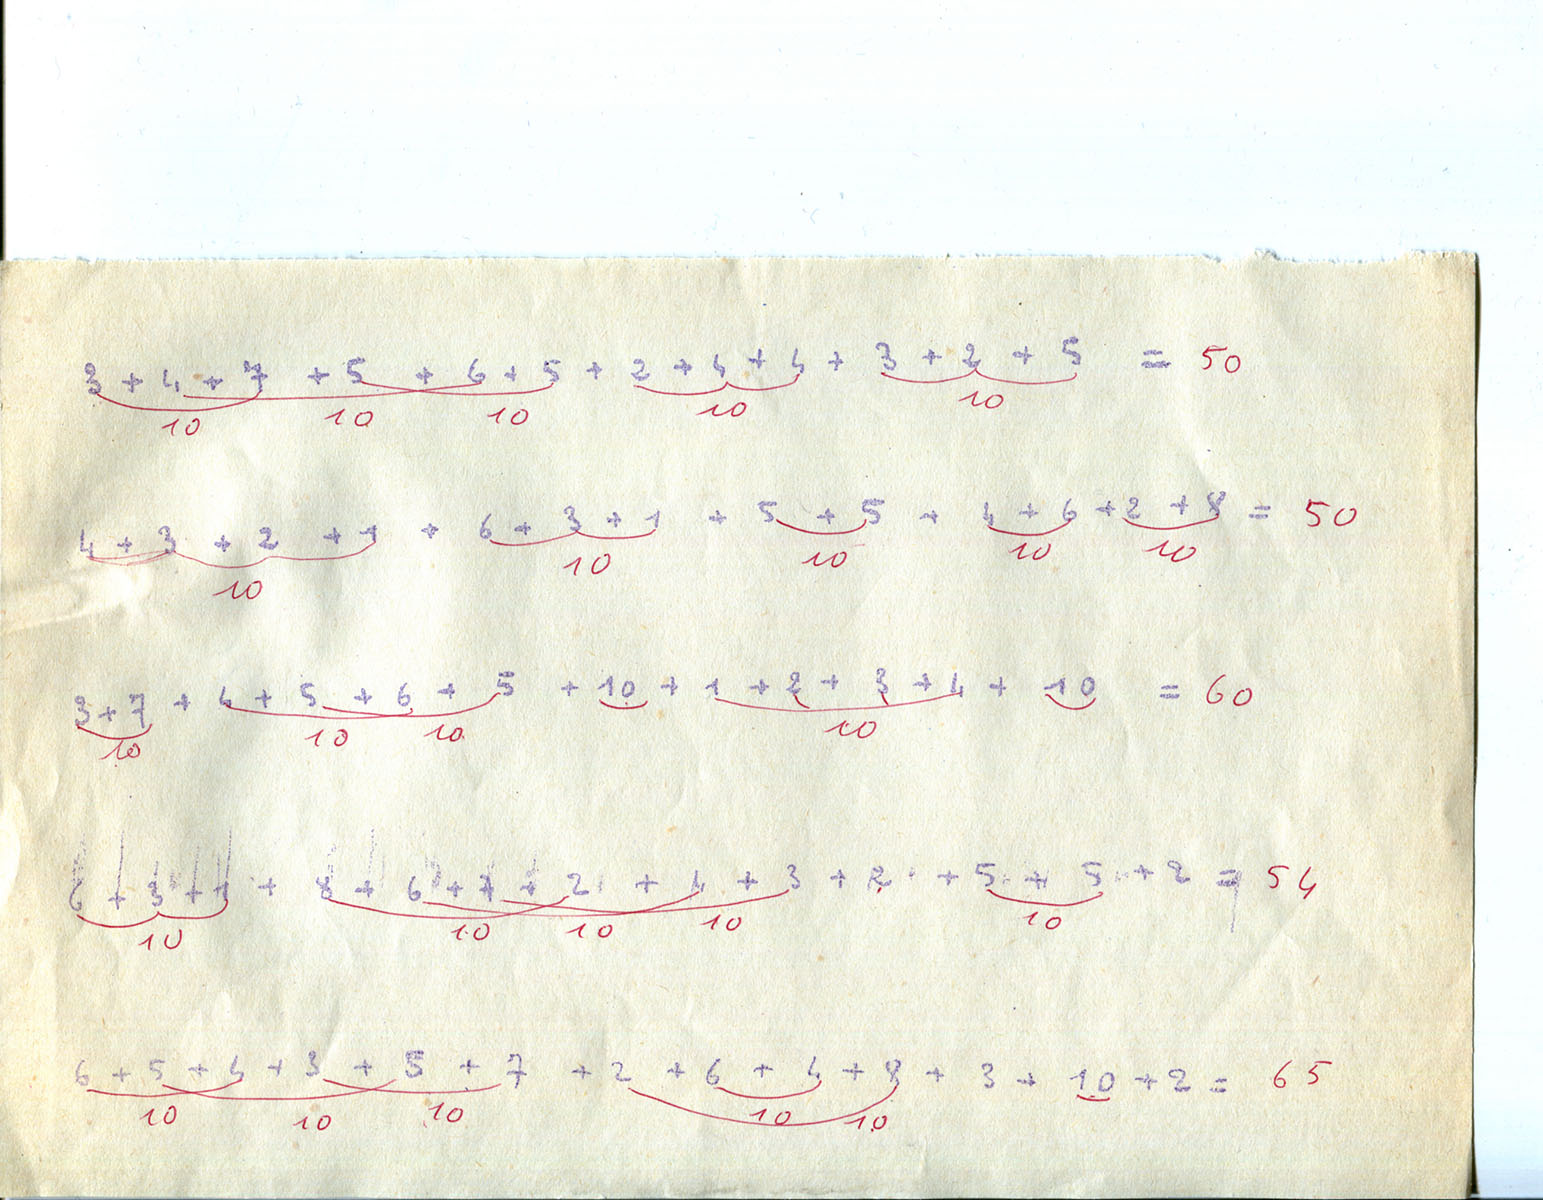 3 + 4 + 7 + 5 + 6 + 5 + 2 + 4 + 4 + 3 + 2 + 5 = 50
10 10 10 10 10
4 + 3 + 2 + 1 + 6 + 3 + 1 + 5 + 5 + 4 + 6 + 2 + 8 = 50
10 10 10 10 10
3 + 7 + 4 + 5 + 6 + 5 + 10 + 1 + 2 + 3 + 4 + 10 = 60
10 10 10 10
6 + 3 + 1 + 8 + 6 + 7 + 2 + 4 + 3 + 2 + 5 + 5 + 2 = 54
10 10 10 10 10
6 + 5 + 4 + 3 + 5 + 7 + 2 + 6 + 4 + 8 + 3 + 10 + 2 = 65
10 10 10 10 10